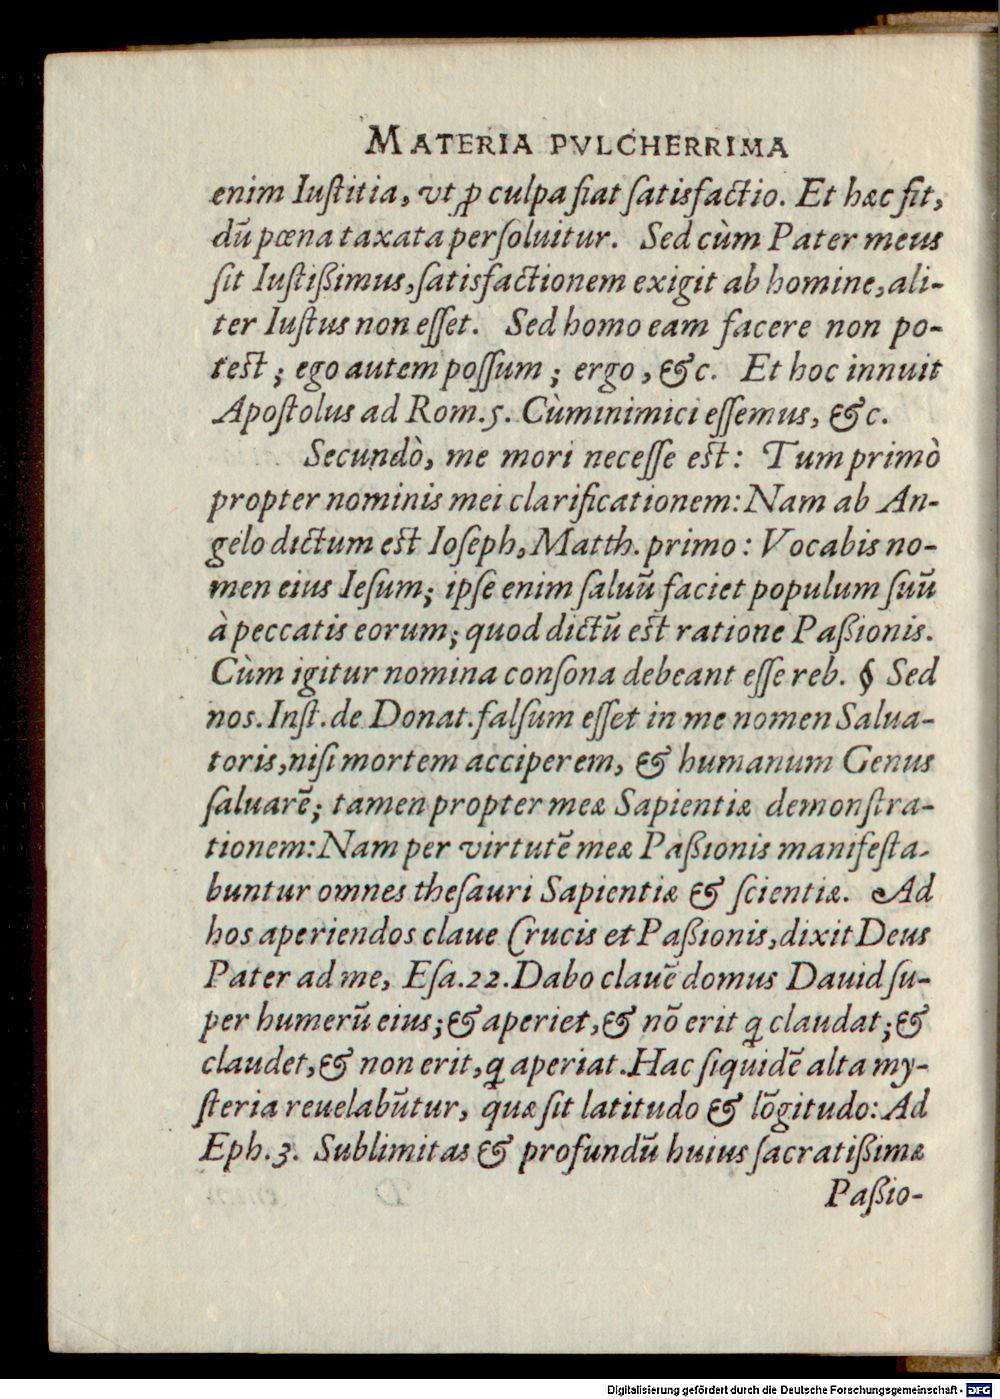 MATERIA PVLCHERRIMA
enim Iuſtitia, vt ꝓ culpa fiat ſatisfactio. Et hæc fit,
dū pœna taxata perſoluitur. Sed cùm Pater meus
ſit Iuſtißimus, ſatisfactionem exigit ab homine, ali-
ter Iuſtus non eſſet. Sed homo eam facere non po-
test; ego autem poſſum; ergo, &c. Et hoc innuit
Apoſtolus ad Rom. 5. Cùm inimici eſſemus, &c.
Secundò, me mori neceſſe est: Tum primò
propter nominis mei clarificationem: Nam ab An-
gelo dictum est Ioſeph, Matth. primo: Vocabis no-
men eius Ieſum; ipſe enim ſaluū faciet populum ſuū
à peccatis eorum; quod dictū est ratione Paßionis.
Cùm igitur nomina conſona debeant eſſe reb. § Sed
nos. Inſt. de Donat. falſum eſſet in me nomen Salua-
toris, niſi mortem acciperem, & humanum Genus
ſaluarē; tamen propter meæ Sapientiæ demonſtra-
tionem: Nam per virtutē meæ Paßionis manifeſta-
buntur omnes theſauri Sapientiæ & ſcientiæ. Ad
hos aperiendos claue Crucis et Paßionis, dixit Deus
Pater ad me, Eſa. 22. Dabo clauē domus Dauid ſu-
per humerū eius; & aperiet, & nō erit q̃ claudat; &
claudet, & non erit, q̃ aperiat. Hac ſiquidē alta my-
ſteria reuelabūtur, quæ ſit latitudo & lōgitudo: Ad
Eph. 3. Sublimitas & profundū huius ſacratißimæ
Paßio-
Digitalisierung gefördert durch die Deutsche Forschungsgemeinschaft - DFG